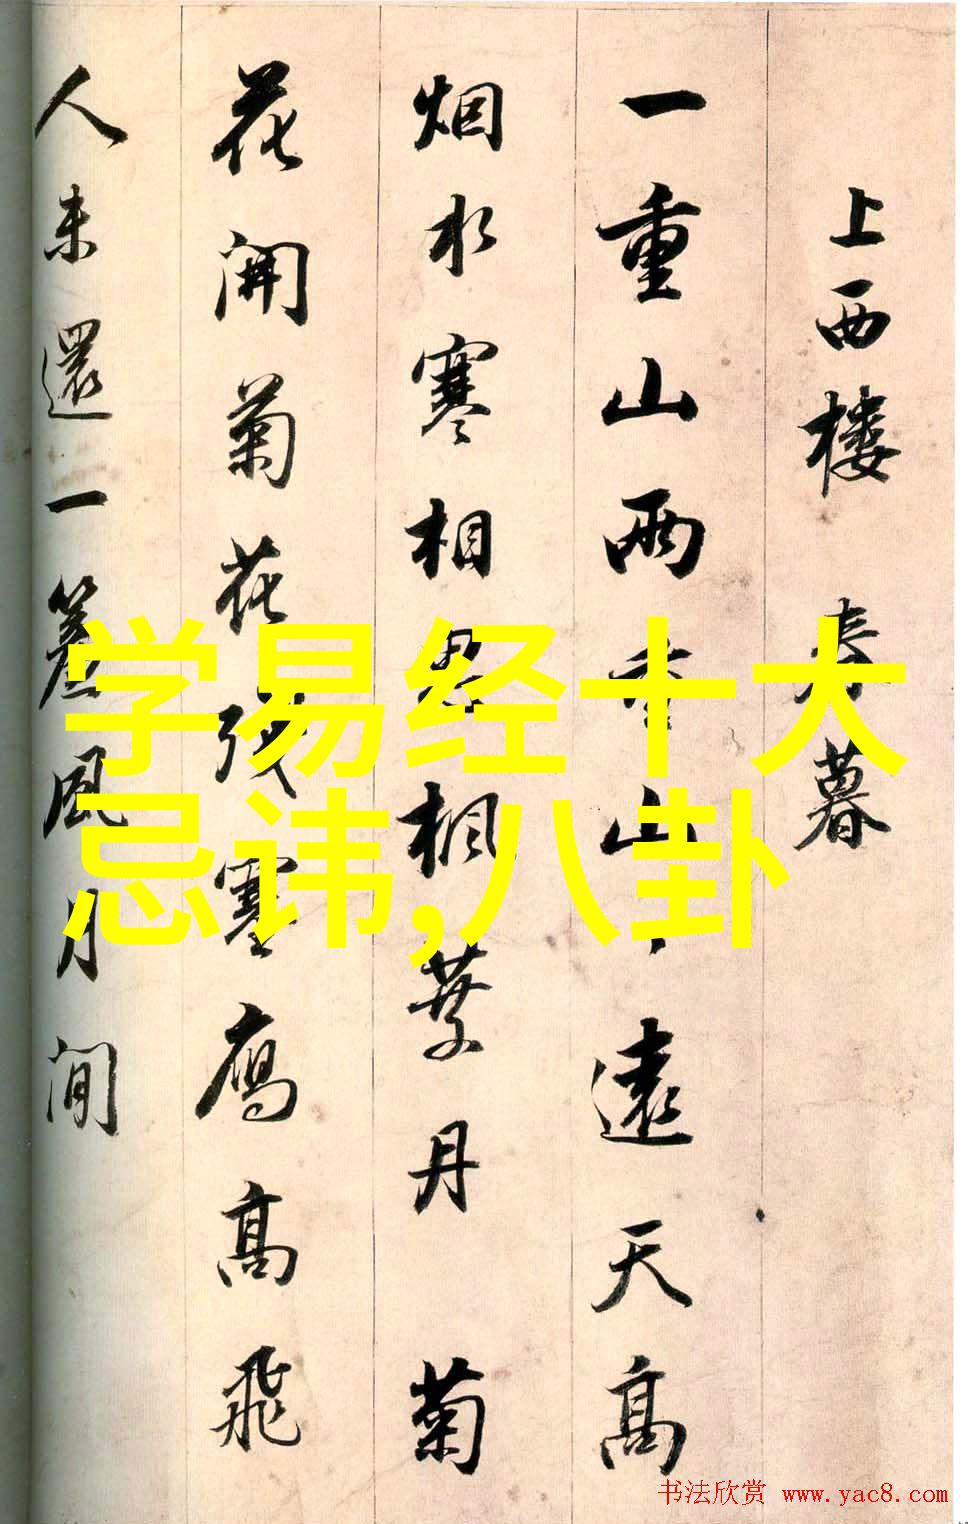 上西楼 春暮
一重山兩重山遠天高
烟水寒相思楓葉丹 菊
花開菊花残塞鴈高飛
人未還一簾風月閒
学易经十大
忌讳,八卦
书法欣赏 www.yac8.com